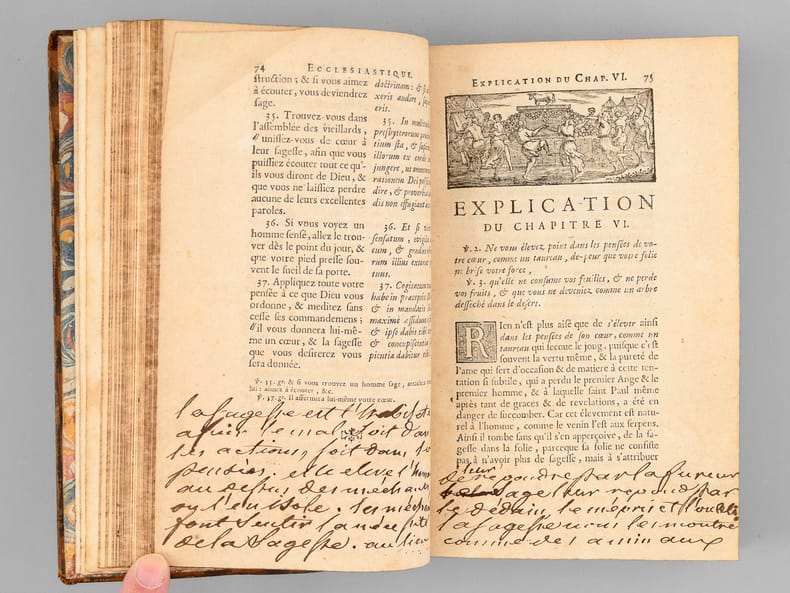 74 ECCLESIASTIQUE
struction; & si vous aimez
à écouter, vous deviendrez
sage.
35. Trouvez-vous dans
l'assemblée des vieillards,
"unissez-vous de cœur à
leur sagesse, afin que vous
puissiez écouter tout ce qu'-
ils vous diront de Dieu, &
que vous ne laissiez perdre
aucune de leurs excellentes
paroles.
36. Si vous voyez un
homme sensé, allez le trou-
ver dès le point du jour, &
que votre pied presse sou-
vent le sueil de sa porte.
37. Appliquez toute votre
pensée à ce que Dieu vous
ordonne, & meditez sans
cesse ses commandemens;
"il vous donnera lui-mê-
me un cœur, & la sagesse
que vous desirerez vous
sera donnée.
doctrinam: &
xeris audire,
eris.
35. In
presbyterorum
tium sta, &
illorum ex corde
jungere, ut
rationem Dei
dire, &
dis non effugiant
36. Et si
sensatum,
eum, &
rum illius
tuus.
37.
habe in
& in mandatis
maximè
& ipse dabit tibi
& concupiscentia
pientia dabitur
℣. 35. gr. & si vous trouvez un homme sage, attachez
lui: aimez à écouter, &c.
℣. 37. gr. Il affermira lui-même votre cœur.
la sagesse est
le mal soit
les actions, soit dans
pensées. elle eleve
au dessus des
ou l'on
font sentir la
de la Sagesse. au lieu
EXPLICATION DU CHAP. VI. 75
EXPLICATION
DU CHAPITRE VI.
℣. 2. Ne vous élevez point dans les pensées de vo-
tre cœur, comme un taureau, de-peur que votre folie
ne brise votre force,
℣. 3. qu'elle ne consume vos feuilles, & ne perde
vos fruits, & que vous ne deveniez comme un arbre
desseché dans le desert.
RIen n'est plus aisé que de s'élever ainsi
dans les pensées de son cœur, comme un
taureau qui secoue le joug, puisque c'est
souvent la vertu même, & la pureté de
l'ame qui sert d'occasion & de matiere à cette ten-
tation si subtile, qui a perdu le premier Ange & le
premier homme, & à laquelle saint Paul même
après tant de graces & de revelations, a été en
danger de succomber. Car cet élevement est natu-
rel à l'homme, comme le venin l'est aux serpens.
Ainsi il tombe sans qu'il s'en apperçoive, de la sa-
gesse dans la folie, parceque sa folie ne consiste
pas à n'avoir plus de sagesse, mais à s'attribuer
leur
de repondre par la fureur
sage leur repond par
le dedain, le mepris et l'oubli
la sagesse les montre
comme des animaux